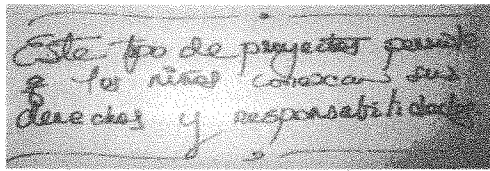 Este tipo de proyectos permite
q los niños conozcan sus
derechos y responsabilidades